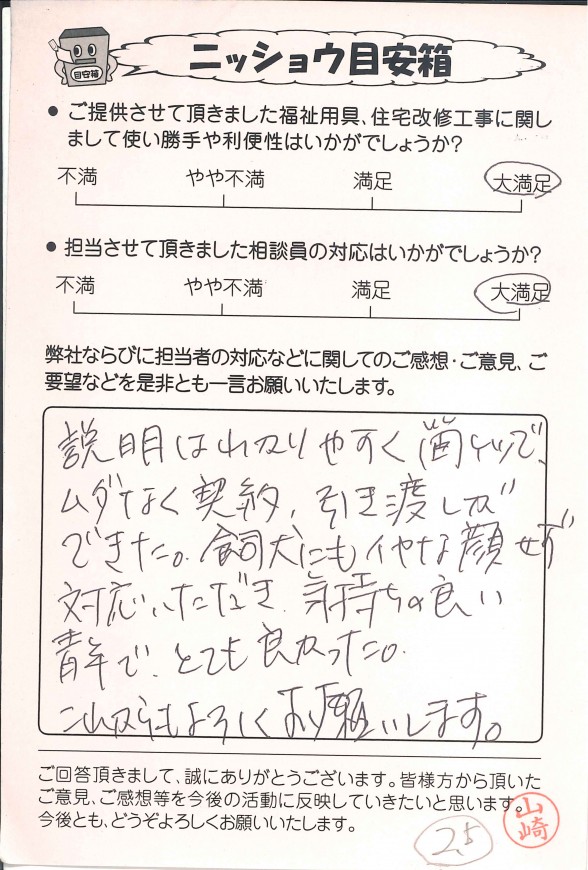 目安箱
ニッショウ目安箱
● ご提供させて頂きました福祉用具、住宅改修工事に関し
まして使い勝手や利便性はいかがでしょうか?
不満 やや不満 満足 大満足
● 担当させて頂きました相談員の対応はいかがでしょうか?
不満 やや不満 満足 大満足
弊社ならびに担当者の対応などに関してのご感想・ご意見、ご
要望などを是非とも一言お願いいたします。
説明はわかりやすく簡ケツで、
ムダなく契約、引き渡しが
できた。飼犬にもイヤな顔せず
対応いただき、気持ちの良い
青年で、とても良かった。
これからもよろしくお願いします。
ご回答頂きまして、誠にありがとうございます。皆様方から頂いた
ご意見、ご感想等を今後の活動に反映していきたいと思います。
今後とも、どうぞよろしくお願いいたします。
山崎
2.5